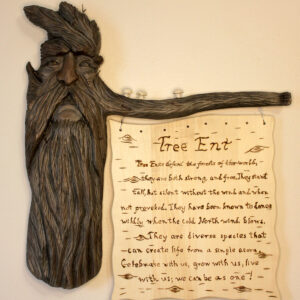 Tree Ent
Tree Ents defend the forests of this world,
they are both strong, and firm. They stand
tall, but silent without the wind and when
not provoked. They have been known to dance
wildly when the cold North wind blows.
They are diverse species that
can create life from a single acorn.
Celebrate with us, grow with us, live
with us; we can be as one!